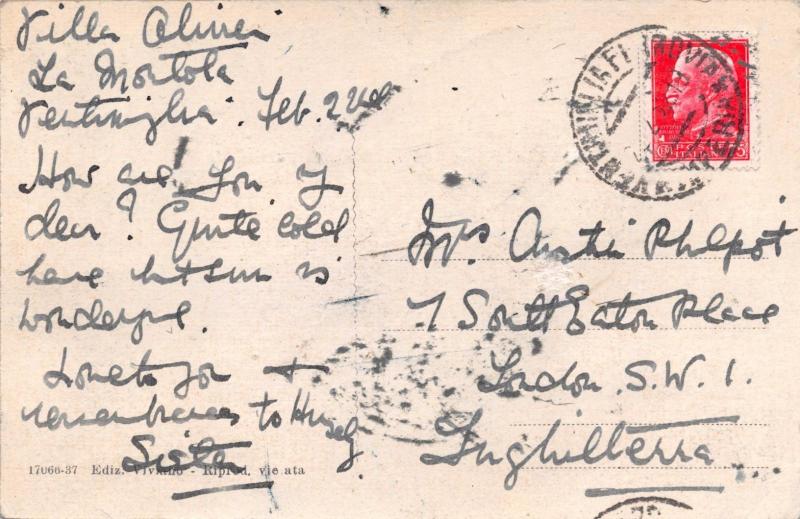 Villa Olivia
La Mortola
Ventimiglia. Feb. 22nd
How are you my
dear? Quite cold
here but sun is
wonderful.
Love to you +
remembrances to
Sister
17066-37 Ediz. Viviano - Riprod. vietata
POSTE
ITALIANE
75
Mrs Austin Philpot
7 South Eaton Place
London. S.W.1.
Inghilterra